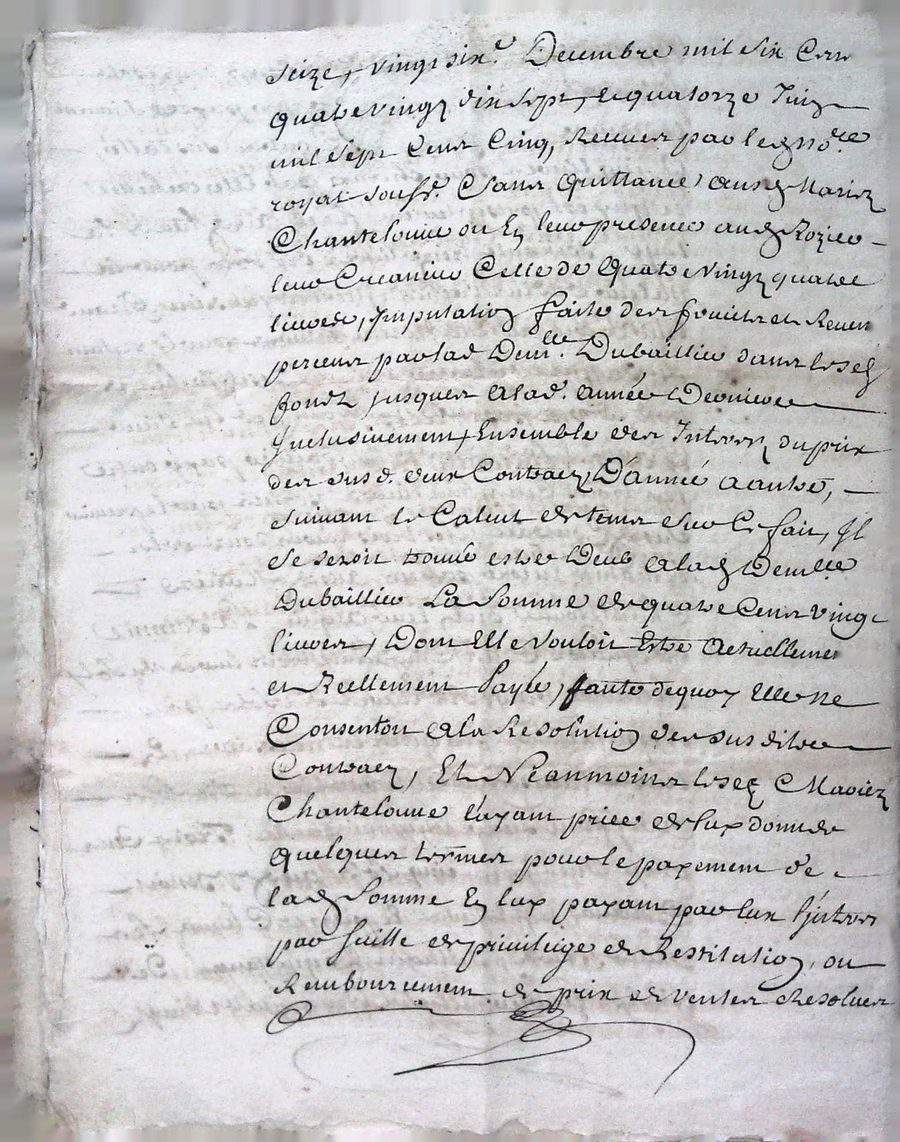 seize, vingt six.e Decembre mil six Cens
quatevingz dix sept, & quatorze Juin
mil sept Cens Cinq, Receues par le no.re
royal soubs.e Sans quittance, aus d Mariez
Chantelouue ou En leur presence au d Rozier
leur Creancier Celle de Quate Vingz quatre
liures, Imputation faite des fruicts et Reuen
perceus par lad Dem.lle Dubaillier dans lesd
fondz jusques a lad. année Derniere
Inclusiuement, Ensemble des Interez du prix
des susd. deux Contracz, D'année a autre,
suiuant le Calcul de tems sur Ce fait, Il
se seroit trouué estre Deub a lad Dem.lle
Dubaillier La Somme de quatre Cens vingt
liures, Dont Elle vouloit Estre Actuellemen
et Reellement Payée, faute dequoy Elle se
Consentoit a la Resolution des susdites
Contracz, Et Neanmoins lesd Mariez
Chantelouue l'ayant priée de lux donner
quelques termes pour le payement de
lad Somme En lux payant par lux Interes
par suitte de priuilege de Restitution, ou
Remboursement de prix de ventes Resolues